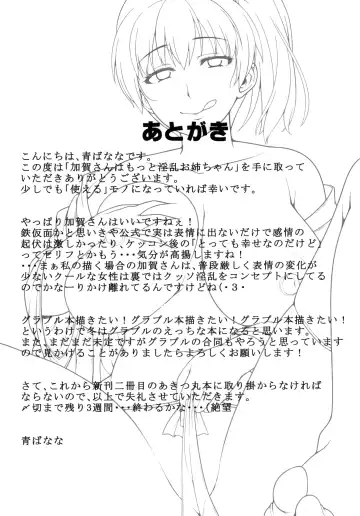 あとがき
こんにちは、青ばななです。
この度は「加賀さんはもっと淫乱お姉ちゃん」を手に取って
いただきありがとうございます。
少しでも「使える」モノになっていれば幸いです。
やっぱり加賀さんはいいですねぇ！
鉄仮面かと思いきや公式で実は表情に出ないだけで感情の
起伏は激しかったり、ケッコン後の「とっても幸せなのだけど」
ってセリフとかもう・・・気分が高揚しますね！
・・・まぁ私の描く場合の加賀さんは、普段厳しく表情の変化が
少ないクールな女性は裏ではクッソ淫乱をコンセプトにしてる
のでかなーりかけ離れてるんですけどね（・３・
グラブル本描きたい！グラブル本描きたい！グラブル本描きたい！
というわけで冬はグラブルのえっちな本になると思います。
また、まだまだ未定ですがグラブルの合同もやろうと思っています
ので見かけることがありましたらよろしくお願いします！
さて、これから新刊二冊目のあきつ丸本に取り掛からなければ
ならないので、以上で失礼させていただきます。
〆切まで残り3週間・・・終わるかな・・・（絶望
青ばなな